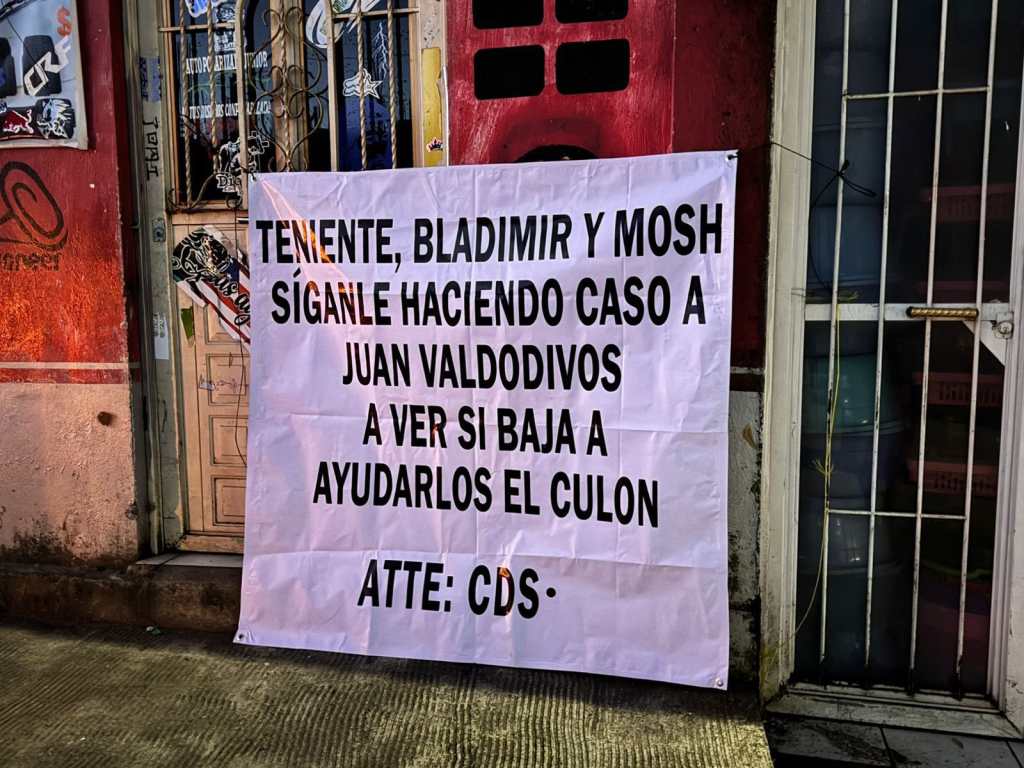 CRF
TENIENTE, BLADIMIR Y MOSH
SÍGANLE HACIENDO CASO A
JUAN VALDODIVOS
A VER SI BAJA A
AYUDARLOS EL CULON
ATTE: CDS·